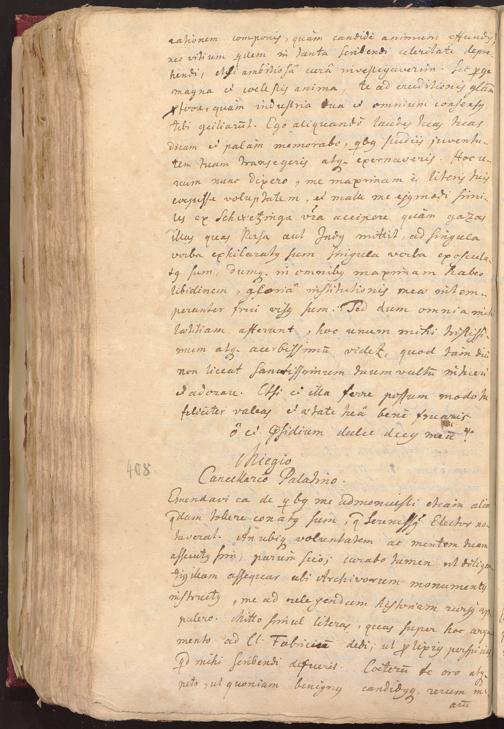 rationem componis, quàm candidè animum effundis
nec vitium quidem in tanta scribendi celeritate depre-
hendi, etsi ambitiosâ curâ investigaverim. Sic perge
magna et coelestis anima, te ad eruditionis
quàm industria tua et omnium consensus
tibi Ego aliquando laudes tuas
dicam et palàm memorabo, quibus studiis juventu-
tem tuam transegeris atque Hoc u-
num nunc dixero, me maximam è literis tuis
cepisse voluptatem, et malle me ejusmodi simi-
les ex Schwetzinga vestra accipere, quàm gazas
illas quas Persa aut Indus mittit, ad singula
verba exhilaratus sum singula verba
sum, dumque in omnibus maximam habeo
libidinem, gloriâ institutionis meae intem-
peranter frui visus sum. Sed dum omnia mihi
laetitiam afferunt, hoc unum mihi tristissi-
mum atque acerbissimum videtur, quod tam diu
non liceat sanctissimum tuum vultum intueri
et adorare. Etsi et illa ferre possum modo tu
feliciter valeas et aetate tuâ benè fruaris
ô et Praesidium dulce decus meum
408
Cancellario Palatino.
Emendavi ea de quibus me admonuisti etiam alia
quaedam tollere conatus sum, quae Serenissimus Elector no-
taverat. An ubique voluntatem ac mentem tuam
assecutus sim, parum scio; curabo tamen ut diligen-
tius illam assequar ubi Archivorum monumentis
instructus, me ad relegendam historiam rursus ap-
pulero. Mitto simul literas, quas super hoc argu-
mento ad Cl. Fabricium dedi; ut
quid mihi scribendi defuerit. Coeterum te oro atque
peto, ut quoniam benignus candidusque rerum me-
arum